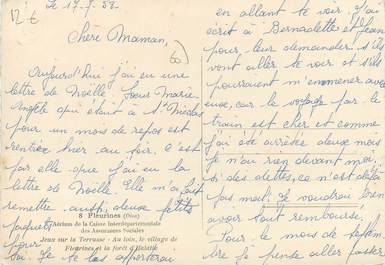 12 €
le 17.7.52
Chère Maman,
60
Aujourd'hui j'ai eu une
lettre de Noëlle. Soeur Marie
Angèle qui était à St Nicolas
pour un mois de repos est
rentrée hier au soir. C'est
par elle que j'ai eu la
lettre de Noëlle. Elle m'a fait
remettre aussi deux petits
paquets
pour
Je te les apporterai
8 Fleurines (Oise)
Aérium de la Caisse Interdépartementale
des Assurances Sociales
Jeux sur la Terrasse - Au loin, le village de
Fleurines et la forêt d'Halatte
en allant te voir. J'ai
écrit à Bernadette et Jean
pour leur demander s'ils
vont aller te voir et s'ils
pourraient m'emmener avec
eux, car le voyage par le
train est cher et comme
j'ai été arrêtée deux mois
je n'ai rien devant moi,
si des dettes, ce n'est déjà
pas mal. Je voudrais bien
avoir tout remboursé.
Pour le mois de septem
bre je pense aller passer